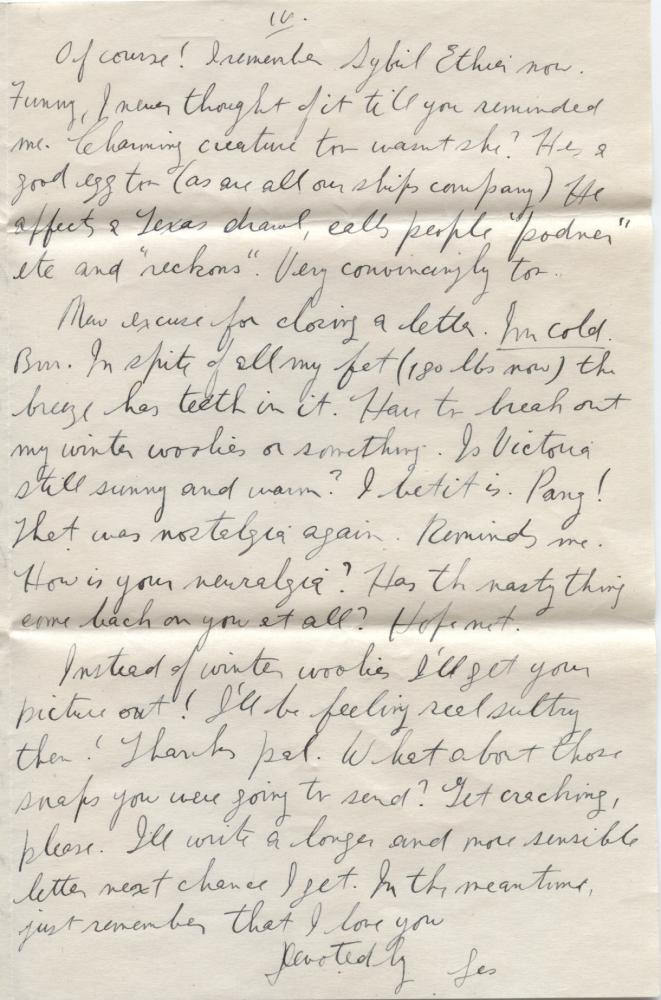 IV.
Of course! I remember Sybil Ethier now.
Funny, I never thought of it till you reminded
me. Charming creature too wasnt she? Hes a
good egg too (as are all our ships company) He
affects a Texas drawl, calls people "podner"
etc and "reckons". Very convincingly too.
New excuse for closing a letter. Im cold.
Brrr. In spite of all my fat (180 lbs now) the
breeze has teeth in it. Have to break out
my winter woolies or something. Is Victoria
still sunny and warm? I bet it is. Pang!
That was nostalgia again. Reminds me.
How is your neuralgia? Has th nasty thing
come back on you at all? Hope not.
Instead of winter woolies I'll get your
picture out! I'll be feeling reel sultry
then! Thanks pal. What about those
snaps you were going to send? Get cracking,
please. I'll write a longer and more sensible
letter next chance I get. In th meantime,
just remember that I love you
Devotedly Les